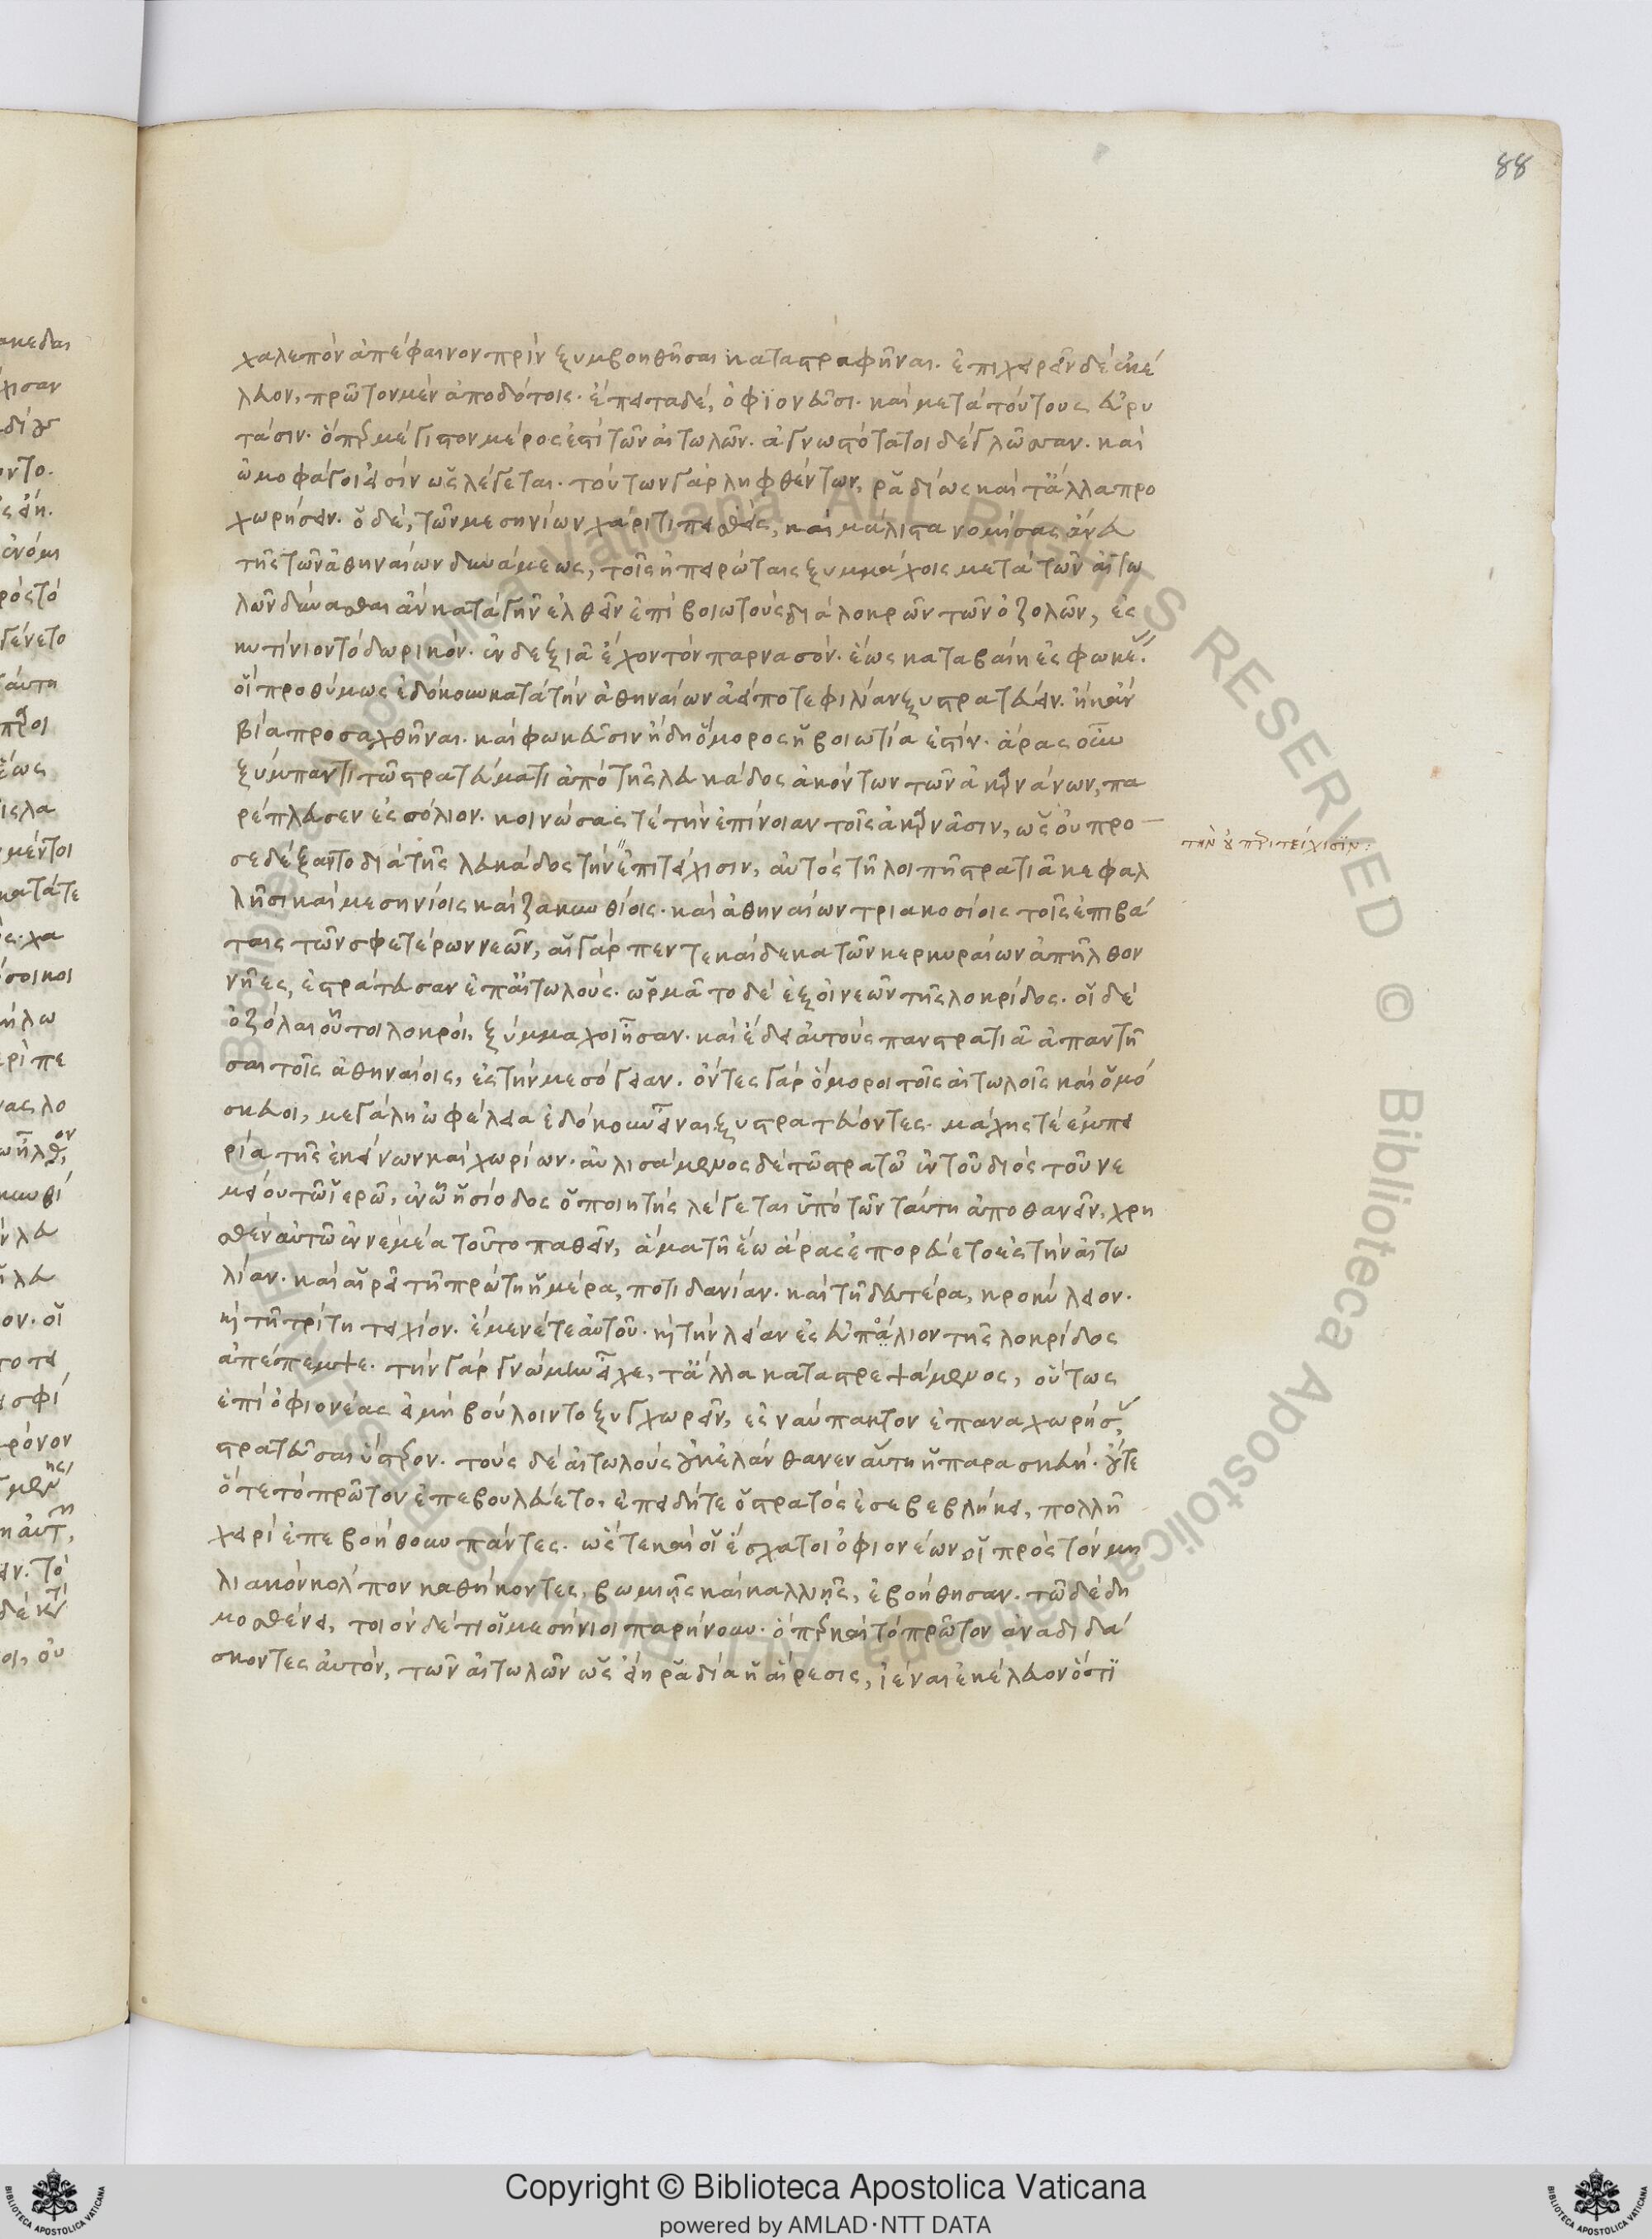 88
χαλεπὸν ἀπέφαινον πρὶν ξυμβοηθῆσαι καταστραφῆναι. ἐπιχειρεῖν δὲ ἐκέ
λευον, πρῶτον μὲν ἀποδότοις. ἔπειτα δὲ, ὀφϊονεῦσι. καὶ μετὰ τούτους εὐρυ
τᾶσιν. ὅπερ μέγιστον μέρος ἐστὶ τῶν αἰτωλῶν. ἀγνωστότατοι δὲ γλῶσσαν. καὶ
ὠμοφάγοι εἰσὶν ὡς λέγεται. τούτων γὰρ ληφθέντων, ῥαδίως καὶ τἄλλα προ
χωρήσειν. ὁ δὲ, τῶν μεσηνίων χάριτι πεισθεὶς, καὶ μάλιστα νομίσας ἄνευ
τῆς τῶν ἀθηναίων δυνάμεως, τοῖς ἠπειρώταις ξυμμάχοις μετὰ τῶν αἰτω
λῶν δύνασθαι ἂν κατὰ γῆν ἐλθεῖν ἐπὶ βοιωτοὺς διὰ λοκρῶν τῶν ὀζολῶν, ἐς
κυτίνιον τὸ δωρικόν. ἐν δεξιᾶ ἔχον τὸν παρνασόν. ἕως καταβαίη ἐς φωκέ.
οἳ προθύμως ἐδόκουν κατὰ τὴν ἀθηναίων ἀεί ποτε φιλίαν ξυστρατεύειν. ἢ κἂν
βία προσαχθῆναι. καὶ φωκεῦσιν ἤδη ὅμορος ἡ βοιωτία ἐστίν. ἄρας οὖν
ξύμπαντι τῶ στρατεύματι ἀπὸ τῆς λευκάδος ἀκόντων τῶν ἀκαρνάνων, πα
ρέπλευσεν ἐς σόλιον. κοινώσας τὲ τὴν ἐπίνοιαν τοῖς ἀκαρνᾶσιν, ὡς οὐ προ
σεδέξαντο διὰ τῆς λευκάδος τὴν ἐπιτείχισιν, αὐτὸς τῆ λοιπῆ στρατιᾶ κεφαλ
λῆσι καὶ μεσηνίοις καὶ ζακυνθίοις. καὶ ἀθηναίων τριακοσίοις τοῖς ἐπιβά
ταις τῶν σφετέρων νεῶν, αἱ γὰρ πεντεκαίδεκα τῶν κερκυραίων ἀπῆλθον
νῆες, ἐστράτευσαν ἐπ αἰτωλούς. ὡρμᾶτο δὲ ἐξ οἰνεῶν τῆς λοκρίδος. οἱ δὲ
ὀζόλαι οὗτοι λοκροὶ, ξύμμαχοι ἦσαν. καὶ ἔδει αὐτοὺς πανστρατιᾶ ἀπαντῆ
σαι τοῖς ἀθηναίοις, ἐς τὴν μεσόγειαν. ὄντες γὰρ ὅμοροι τοῖς αἰτωλοῖς καὶ ὁμό
σκευοι, μεγάλη ὠφέλεια ἐδόκουν εἶναι ξυστρατεύοντες. μάχης τὲ ἐμπει
ρία τῆς ἐκείνων καὶ χωρίων. αὐλισάμενος δὲ τῶ στρατῶ ἐν τοῦ διὸς τοῦ νε
μείου τῶ ἱερῶ, ἐν ὧ ἡσίοδος ὁ ποιητὴς λέγεται ὑπὸ τῶν ταύτη ἀποθανεῖν, χρη
σθὲν αὐτῶ ἐν νεμέα τοῦτο παθεῖν, ἅμα τῆ ἕω ἄρας ἐπορεύετο ἐς τὴν αἰτω
λίαν. καὶ αἱρεῖ τῆ πρώτη ἡμέρα, ποτιδανίαν. καὶ τῆ δευτέρα, κροκύλειον.
καὶ τῆ τρίτη τείχιον. ἔμενέ τε αὐτοῦ. καὶ τὴν λείαν ἐς εὐπάλιον τῆς λοκρίδος
ἀπέπεμψε. τὴν γὰρ γνώμην εἶχε, τἄλλα καταστρεψάμενος, οὕτως
ἐπὶ ὀφιονέας εἰ μὴ βούλοιντο ξυγχωρεῖν, ἐς ναύπακτον ἐπαναχωρήσας
στρατεῦσαι ὕστερον. τοὺς δὲ αἰτωλοὺς οὐκ ἐλάνθανεν αὕτη ἡ παρασκευή. οὔτε
ὅτε τὸ πρῶτον ἐπεβουλεύετο, ἐπειδή τε ὁ στρατὸς ἐσεβεβλήκει, πολλῆ
χειρὶ ἐπεβοήθουν πάντες. ὥστε καὶ οἱ ἔσχατοι ὀφιονέων οἱ πρὸς τὸν μη
λιακὸν κόλπον καθήκοντες, βωμιῆς καὶ καλλιῆς, ἐβοήθησαν. τῶ δὲ δη
μοσθένει, τοιόνδέ τι οἱ μεσήνιοι παρήνουν. ὅπερ καὶ τὸ πρῶτον ἀναδιδά
σκοντες αὐτὸν, τῶν αἰτωλῶν ὡς εἴη ῥαδία ἡ αἵρεσις, ἰέναι ἐκέλευον ὅτι
τὴν οὐ περιτείχισιν:
Copyright © Biblioteca Apostolica Vaticana
powered by AMLAD·NTT DATA